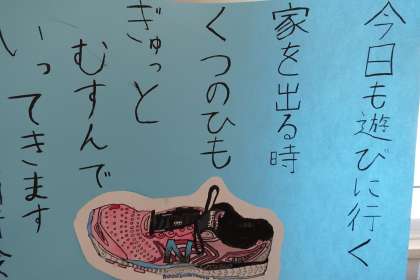 今日も遊びに行く
家を出る時
くつのひも
ぎゅっと
むすんで
いってきます
N